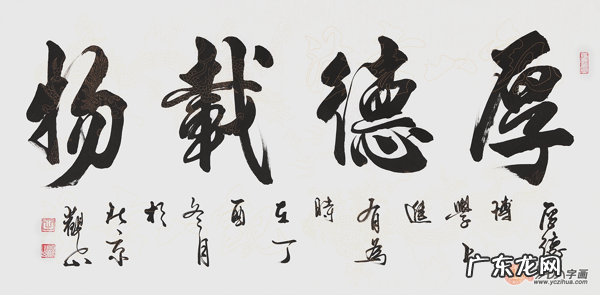 厚德載物
厚德
博
學上
進
有為
時
在丁
酉
冬月
於
北京
广东龙网
字画
www.yczihua.com